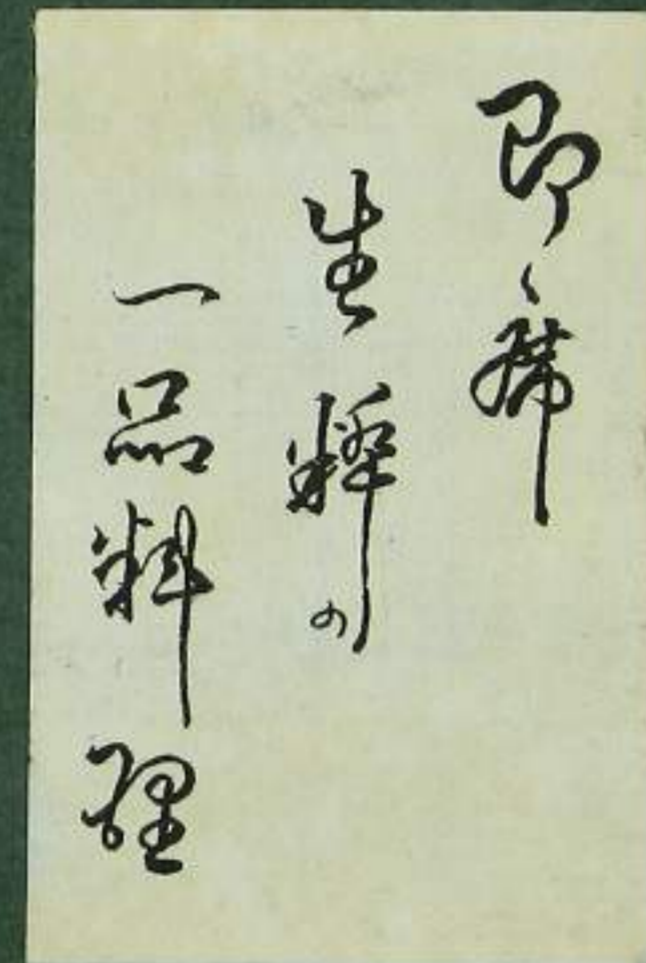 即席
生粋の
一品料理